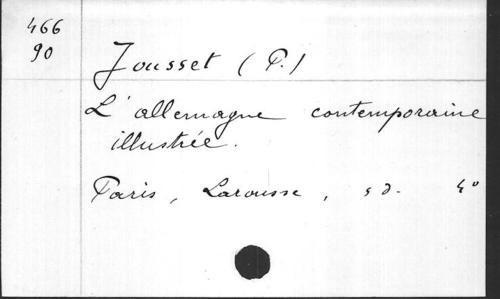 466
90
Jousset (P.)
L'allemagne contemporaine
illustrée.
Paris, Larousse, s d. 4°